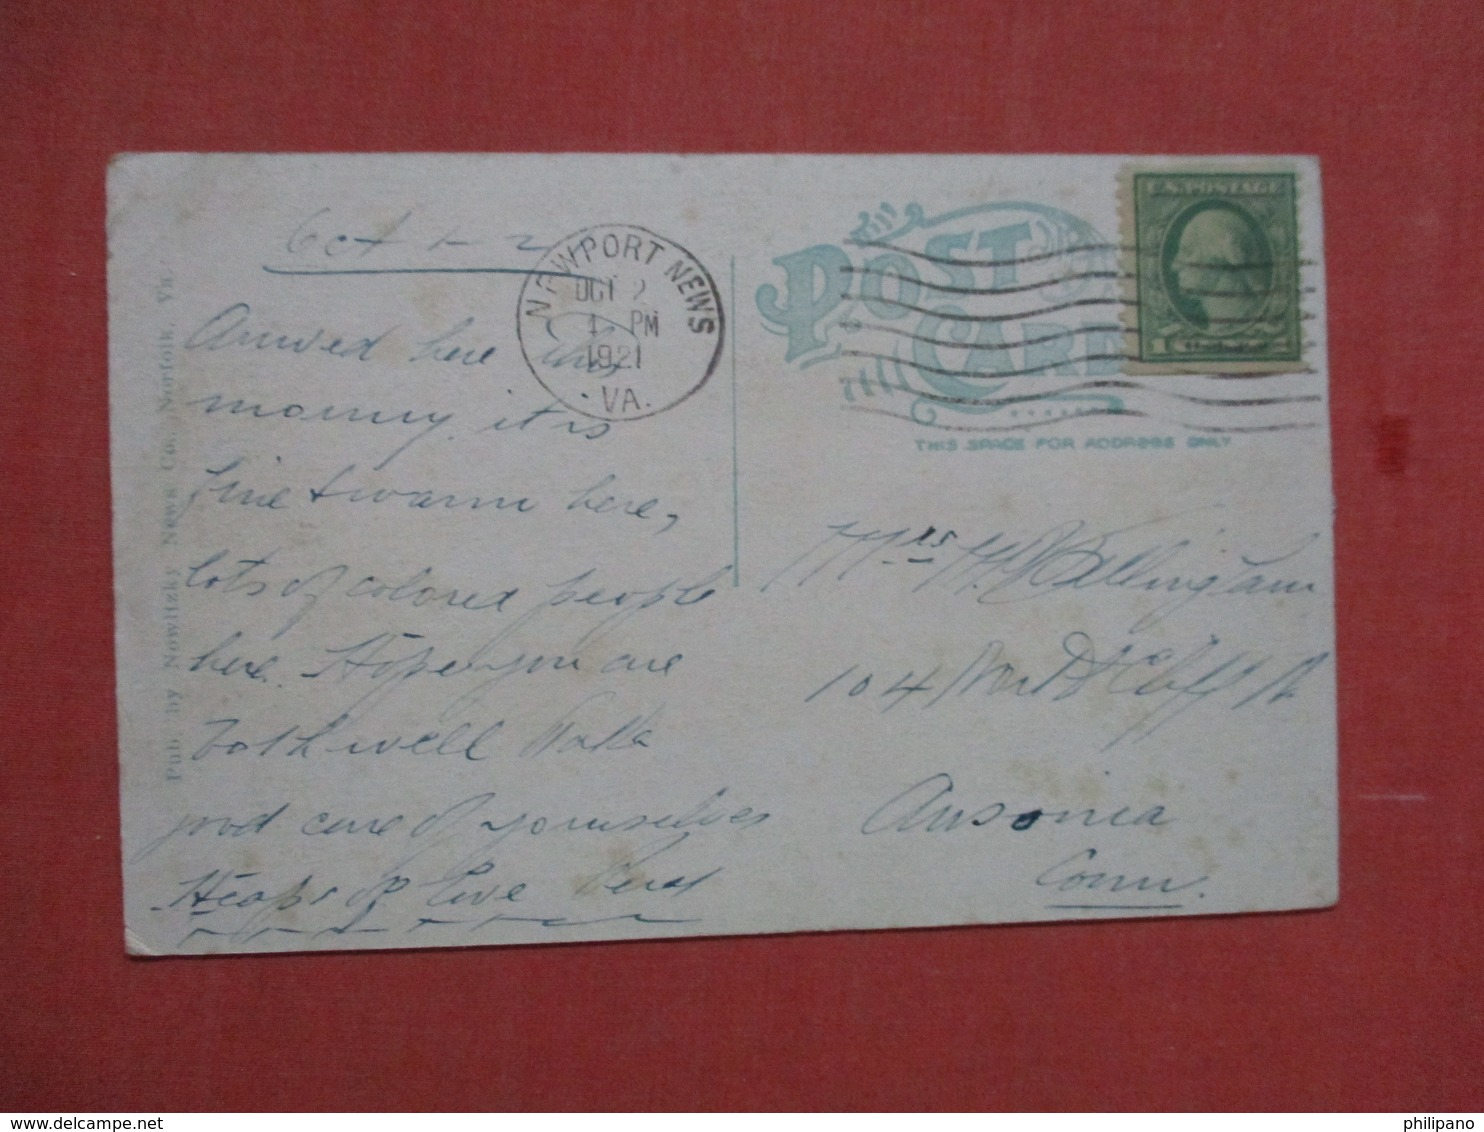 Oct 1-2
Arrived here this
morning. it is
fine & warm here,
lots of colored people
here. Hope you are
both well Take
good care of yourselves
Heaps of Love
NEWPORT NEWS
OCT 2
4 PM
1921
VA.
POST CARD
THIS SPACE FOR ADDRESS ONLY
U.S. POSTAGE
1
Mrs H Bellingham
104 North Cliff St
Ansonia
Conn.
Pub. by Nowitzky News Co., Norfolk, Va.
philipano